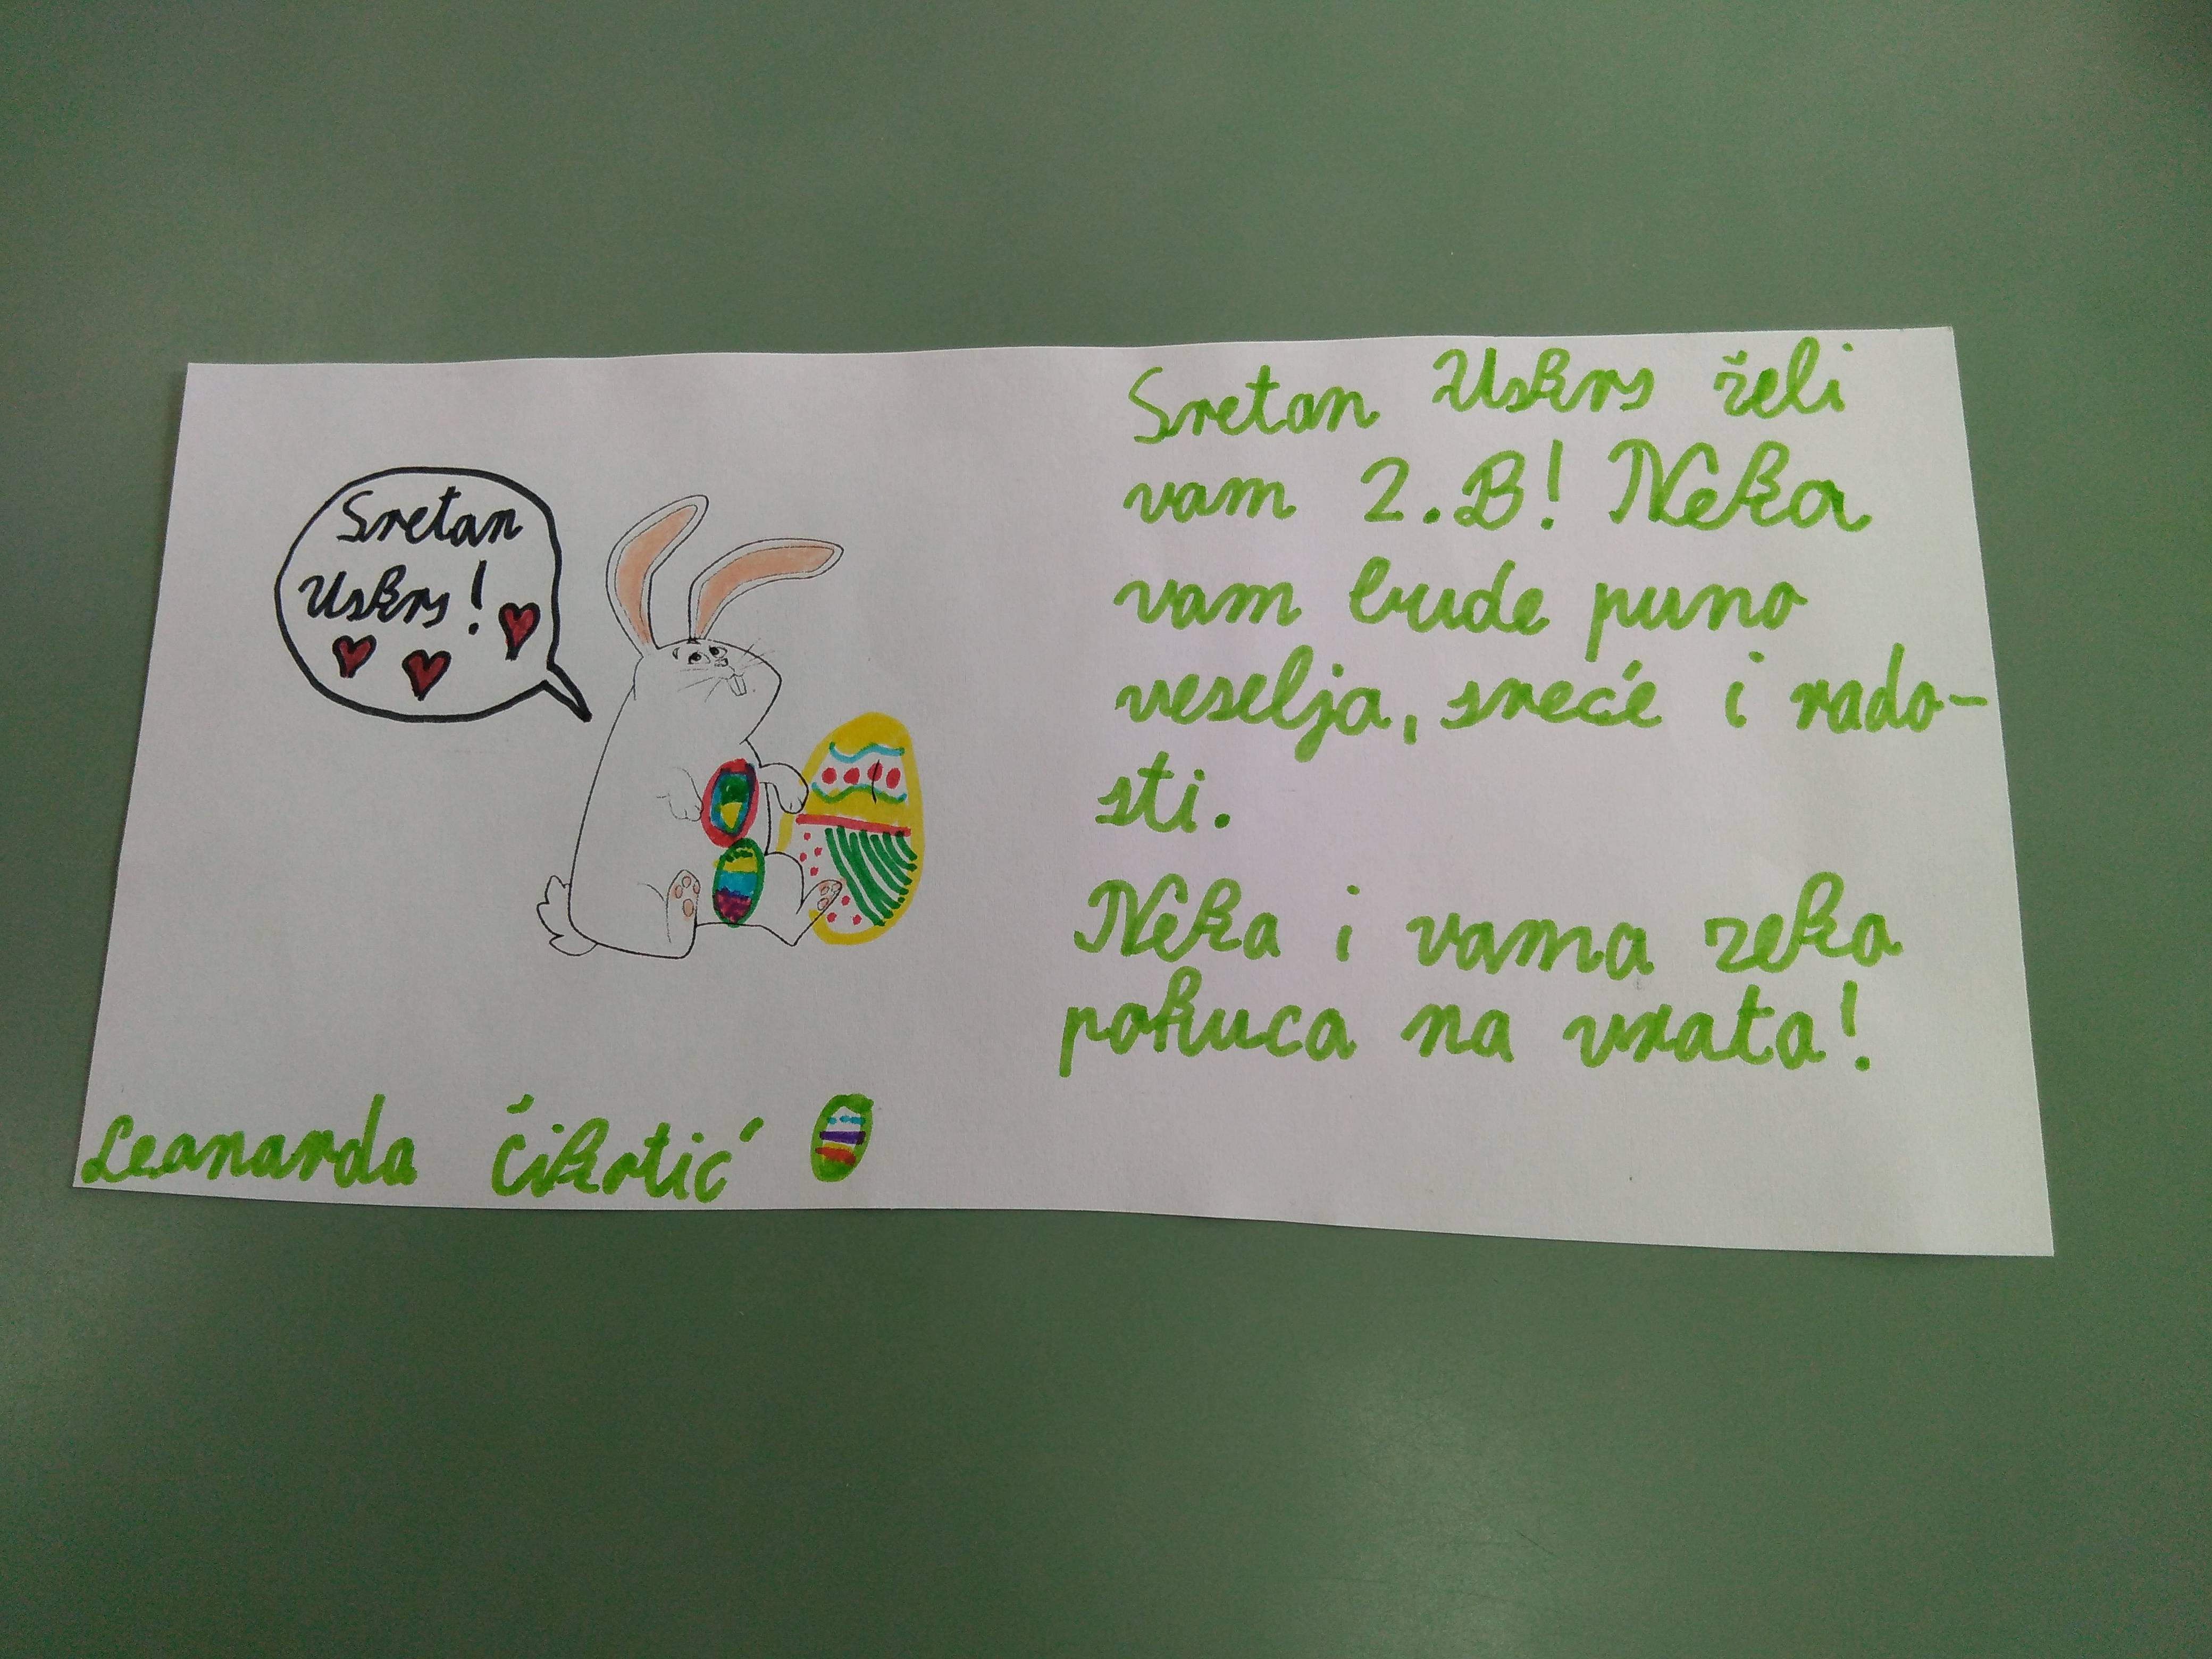 Sretan
Uskrs!
Sretan Uskrs želi
vam 2.B! Neka
vam bude puno
veselja, sreće i rado-
sti.
Neka i vama zeka
pokuca na vrata!
Leanarda Čikotić